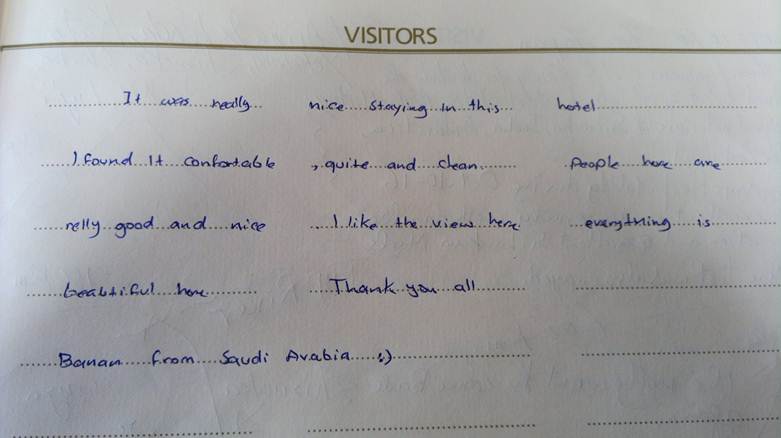 VISITORS
It was really nice staying in this hotel
I found it confortable , quite and clean People here are
relly good and nice I like the view here everything is
beabtiful here Thank you all
Banan from Saudi Arabia :)